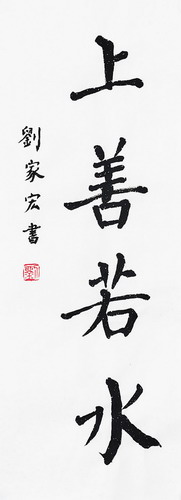 上善若水
劉家宏書
劉